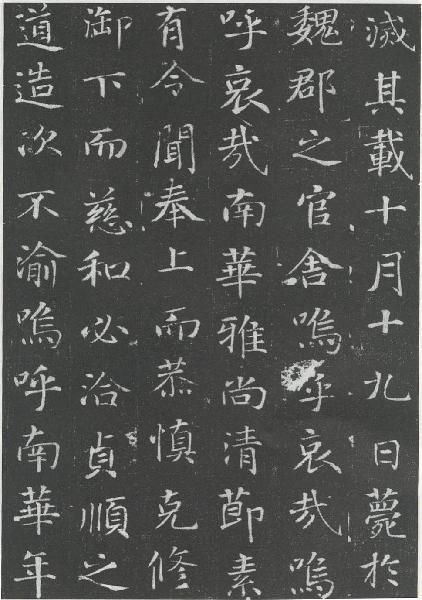 滅其載十月十九日薨於
魏郡之官舎嗚乎哀哉嗚
呼哀哉南華雅尚清節素
有令聞奉上而恭慎克修
御下而慈和必洽貞順之
道造次不渝嗚呼南華年